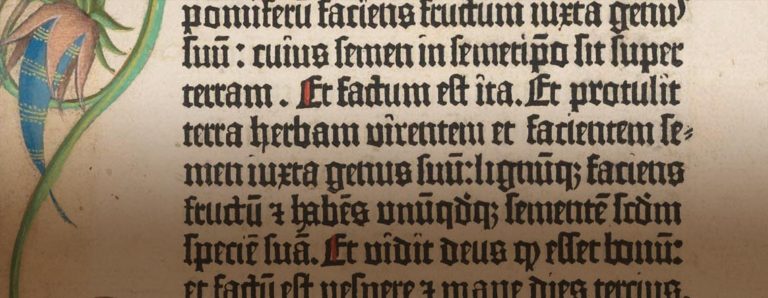 pomiferū faciens fructum iuxta genus
suū : cuius semen in semetip̄o sit super
terram . Et factum est ita. Et protulit
terra herbam virentem et facientem se⸗
men iuxta genus suū: lignūqꝫ faciens
fructū ⁊ habēs unūqđqꝫ sementē scđm
speciē suā. Et vidit deus ꝙ esset bonū:
et factū est vespere ⁊ mane dies tercius.